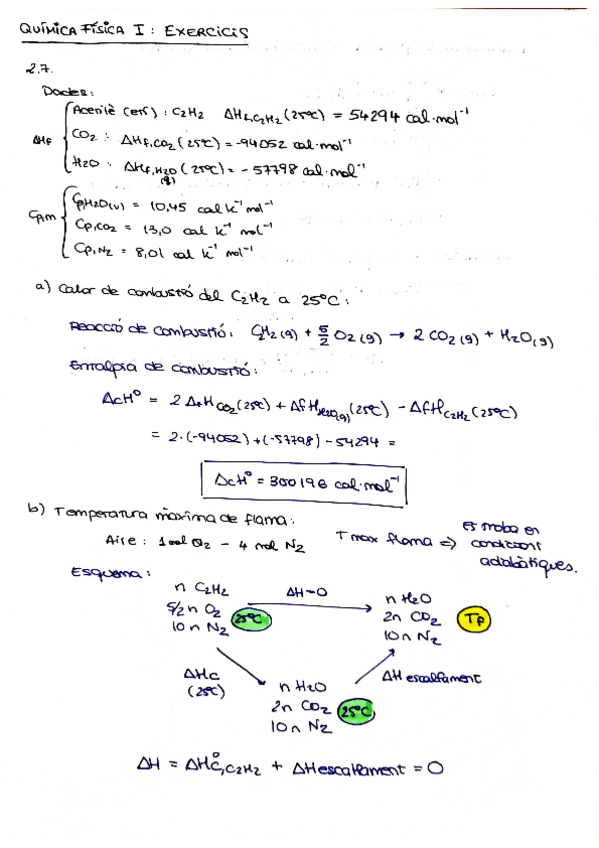 QUÍMICA FÍSICA I: EXERCICIS
2.7.
Dades:
ΔHf
Acetilè (etí): C2H2 ΔHf,C2H2 (25ºC) = 54294 cal·mol⁻¹
CO2: ΔHf,CO2 (25ºC) = -94052 cal·mol⁻¹
H2O: ΔHf,H2O(g) (25ºC) = -57798 cal·mol⁻¹
Cp,m
CpH2O(v) = 10,45 cal K⁻¹ mol⁻¹
Cp,CO2 = 13,0 cal K⁻¹ mol⁻¹
Cp,N2 = 8,01 cal K⁻¹ mol⁻¹
a) Calor de combustió del C2H2 a 25ºC:
Reacció de combustió: C2H2(g) + 5/2 O2(g) → 2 CO2(g) + H2O(g)
Entalpia de combustió:
ΔcHº = 2 ΔfH CO2(25ºC) + ΔfH H2O(g)(25ºC) - ΔfH C2H2(25ºC)
= 2·(-94052)+(-57798)-54294 =
ΔcHº = 300196 cal·mol⁻¹
b) Temperatura màxima de flama:
Aire: 1 mol O2 - 4 mol N2
T max flama => es troba en condicions adiabàtiques.
Esquema:
n C2H2
5/2 n O2
10 n N2
25ºC
ΔH=0
n H2O
2n CO2
10 n N2
Tf
ΔHc
(25ºC)
n H2O
2n CO2
10 n N2
25ºC
ΔH escalfament
ΔH = ΔHºc,C2H2 + ΔHescalfament = 0